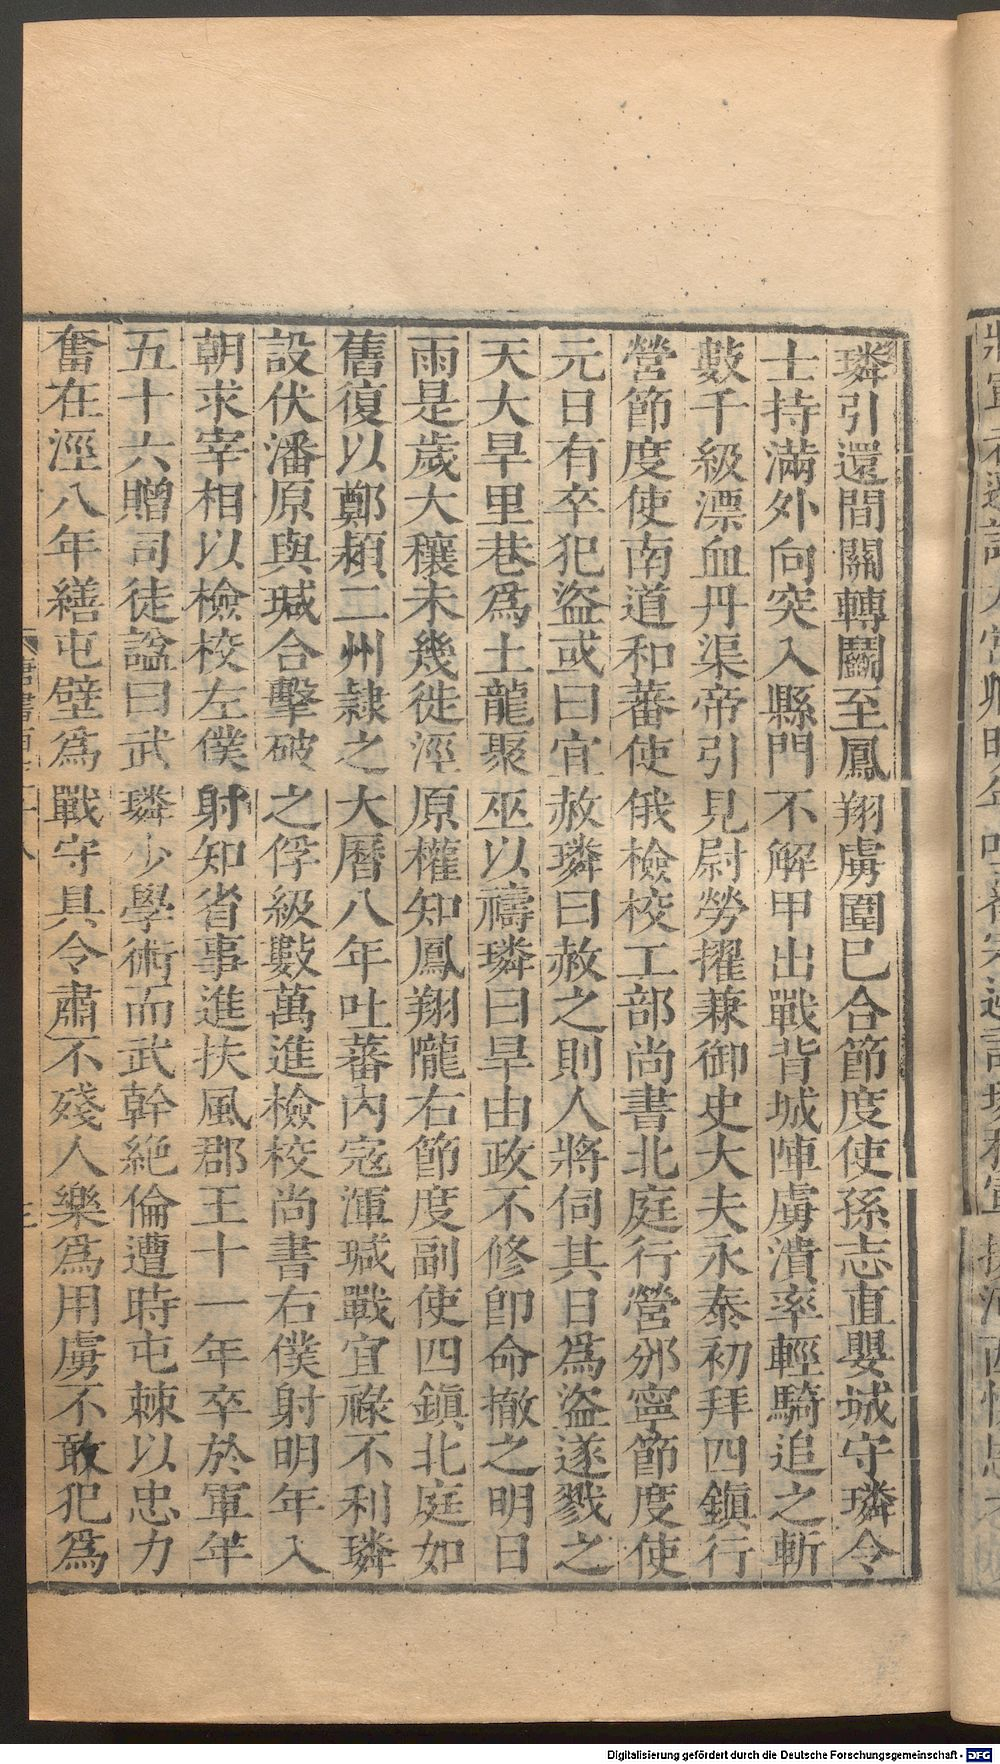 璘引還間關轉鬭至鳳翔虜圍已合節度使孫志直嬰城守璘令
士持滿外向突入縣門不解甲出戰背城陣虜潰率輕騎追之斬
數千級漂血丹渠帝引見尉勞擢兼御史大夫永泰初拜四鎭行
營節度使南道和蕃使俄檢校工部尚書北庭行營邠寧節度使
元日有卒犯盜或曰宜赦璘曰赦之則人將伺其日爲盜遂戮之
天大旱里巷爲土龍聚巫以禱璘曰旱由政不修卽命撤之明日
雨是歲大穰未幾徙涇原權知鳳翔隴右節度副使四鎭北庭如
舊復以鄭潁二州隸之大曆八年吐蕃內寇渾瑊戰宜祿不利璘
設伏潘原與瑊合擊破之俘級數萬進檢校尚書右僕射明年入
朝求宰相以檢校左僕射知省事進扶風郡王十一年卒於軍年
五十六贈司徒諡曰武璘少學術而武幹絶倫遭時屯棘以忠力
奮在涇八年繕屯壁爲戰守具令肅不殘人樂爲用虜不敢犯爲
Digitalisierung gefördert durch die Deutsche Forschungsgemeinschaft - DFG